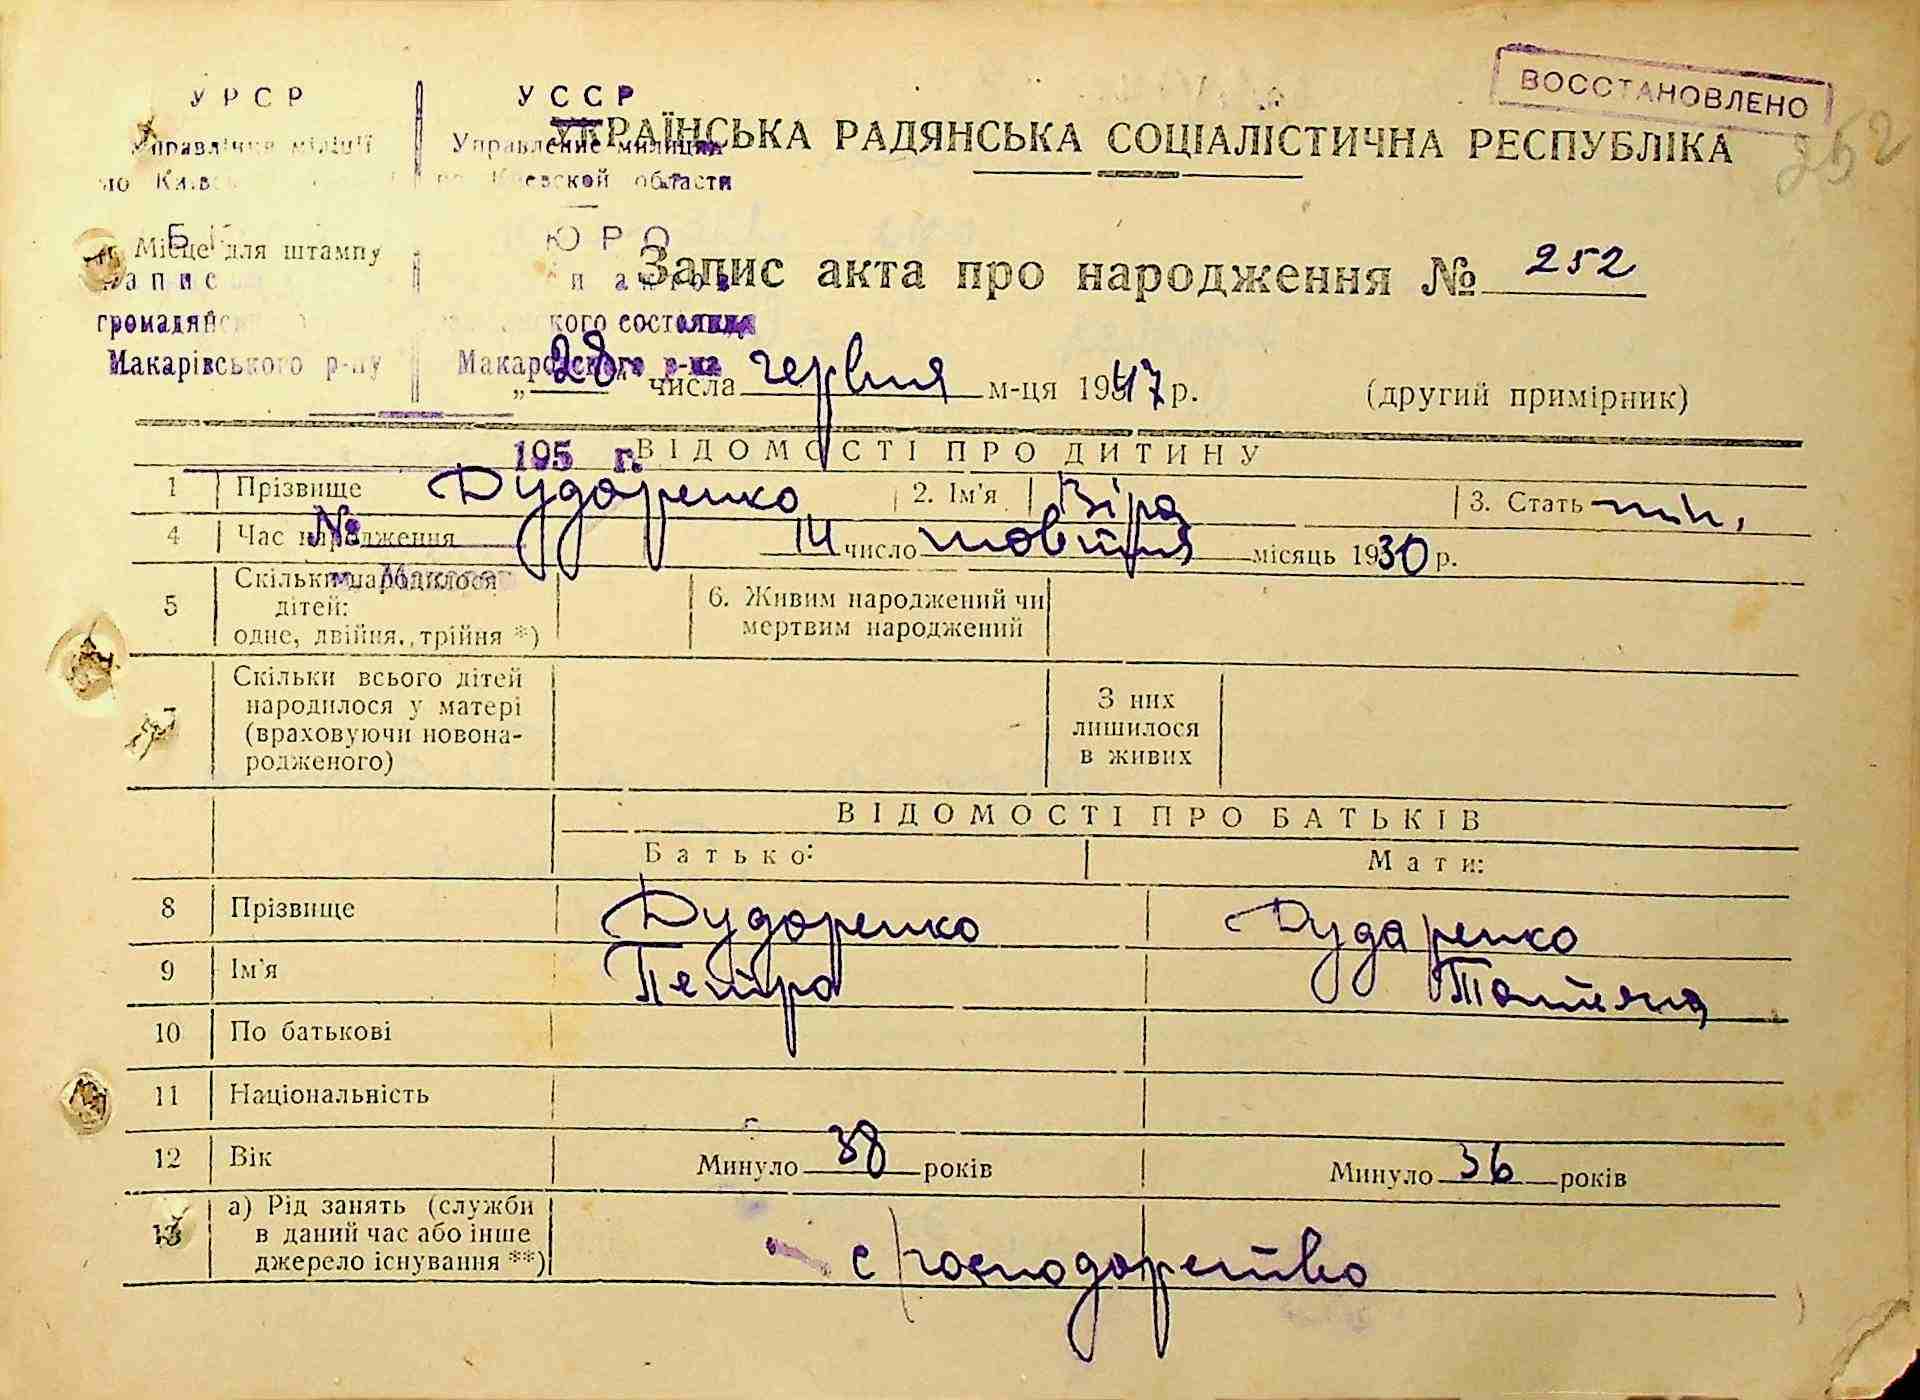 УРСР УССР
ВОССТАНОВЛЕНО
УКРАЇНСЬКА РАДЯНСЬКА СОЦІАЛІСТИЧНА РЕСПУБЛІКА
252
Управління міліції Управление милиции
по Київ по Киевской области
Б ЮРО
Місце для штампу
Запис акта про народження № 252
запис
громадян кого состояния
Макарівського р-ну Макаровского р-на
„28" числа червня м-ця 1947 р. (другий примірник)
195 г.
ВІДОМОСТІ ПРО ДИТИНУ
1 Прізвище Дударенко 2. Ім'я Віра 3. Стать жін.
№
4 Час народження 14 число жовтня місяць 1930 р.
м. Макаров
5 Скільки народилося дітей: одне, двійня, трійня *) 6. Живим народжений чи мертвим народжений
7 Скільки всього дітей народилося у матері (враховуючи новона-родженого) З них лишилося в живих
ВІДОМОСТІ ПРО БАТЬКІВ
Батько: Мати:
8 Прізвище Дударенко Дударенко
9 Ім'я Петро Татьяна
10 По батькові
11 Національність
12 Вік Минуло 38 років Минуло 36 років
13 а) Рід занять (служби в даний час або інше джерело існування **) с господарство